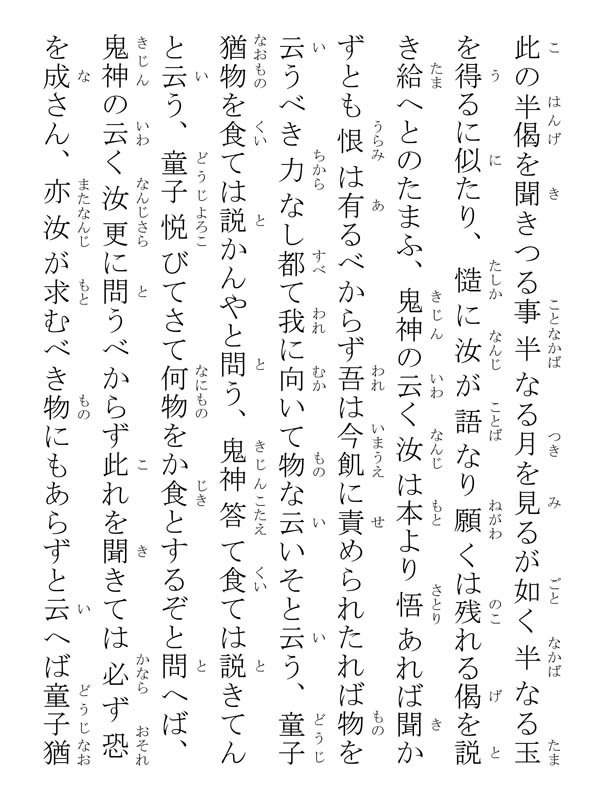 此の半偈を聞きつる事半なる月を見るが如く半なる玉
を得るに似たり、慥に汝が語なり願くは残れる偈を説
き給へとのたまふ、鬼神の云く汝は本より悟あれば聞か
ずとも恨は有るべからず吾は今飢に責められたれば物を
云うべき力なし都て我に向いて物な云いそと云う、童子
猶物を食ては説かんやと問う、鬼神答て食ては説きてん
と云う、童子悦びてさて何物をか食とするぞと問へば、
鬼神の云く汝更に問うべからず此れを聞きては必ず恐
を成さん、亦汝が求むべき物にもあらずと云へば童子猶